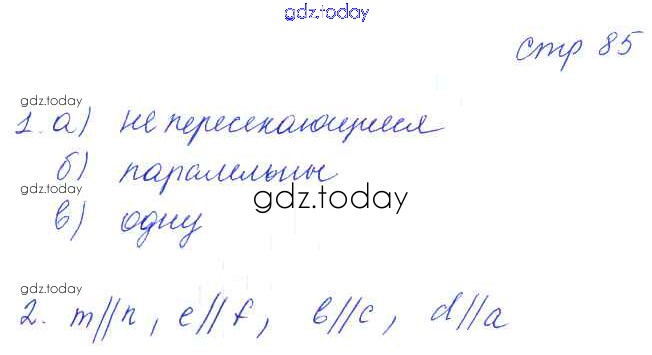 gdz.today
стр 85
gdz.today
1. а) не пересекающиеся
б) паралельны
gdz.today
gdz.today
в) одну
gdz.today
2. m//n, e//f, b//c, d//a